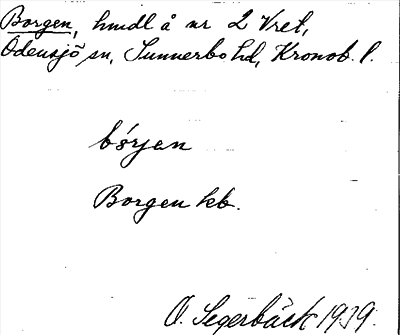 Borgen, hmdl å nr 2 Vret,
Odensjö sn, Sunnerbo hd, Kronob. l.
bórjen
Borgen kb.
O. Segerbäck 1939